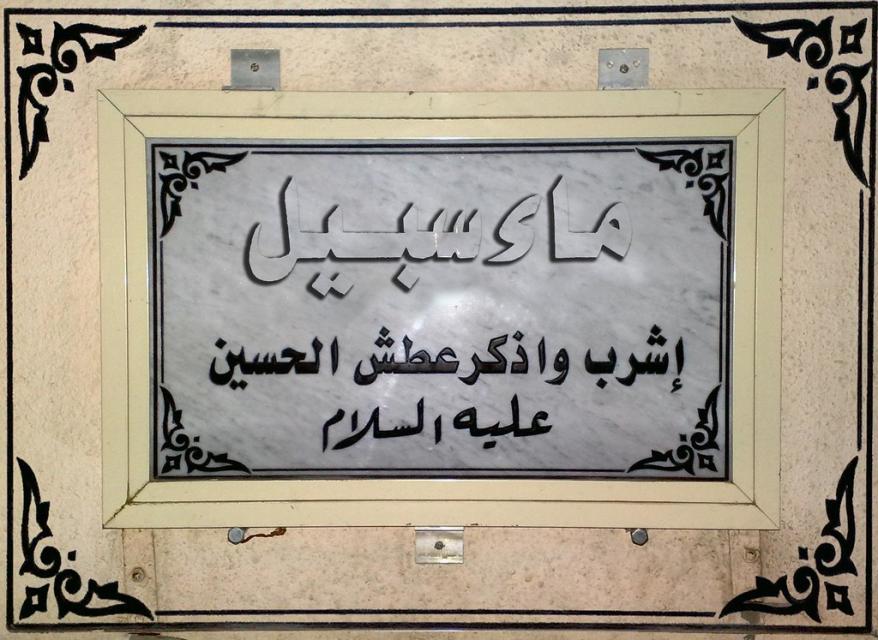 ماء سبيل
إشرب واذكر عطش الحسين
عليه السلام